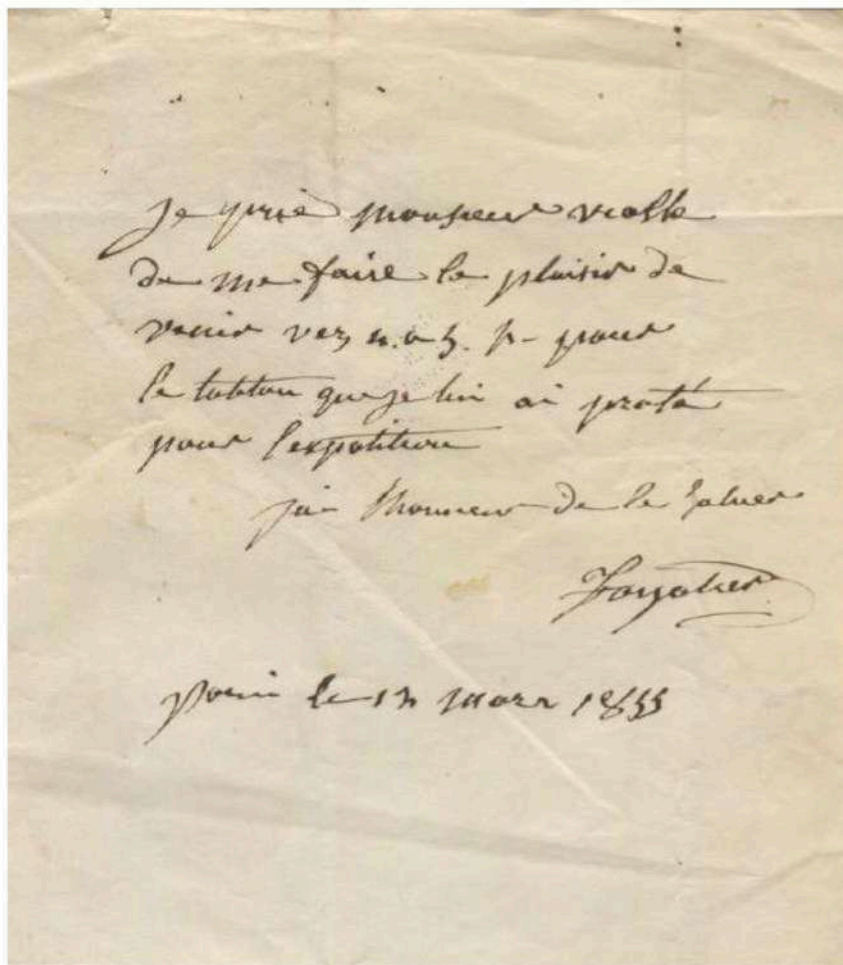 je prie monsieur violle
de me faire le plaisir de
venir vers 4. a 5. h- pour
le tableau que je lui ai preté
pour l'expotition
jai l'honneur de le saluer
Foyatier
paris le 13 mars 1855